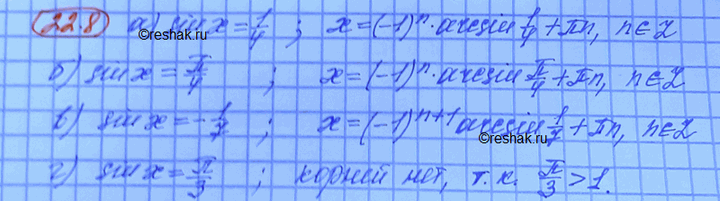 22.8 а) sin x = 1/4 ; x = (-1)^n · arcsin 1/4 + πn, n∈Z
б) sin x = π/4 ; x = (-1)^n · arcsin π/4 + πn, n∈Z
в) sin x = -1/7 ; x = (-1)^{n+1} arcsin 1/7 + πn, n∈Z
г) sin x = π/3 ; корней нет, т.к. π/3 > 1.
©reshak.ru
©reshak.ru
©reshak.ru